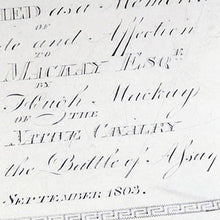 IED as a Memori
OF
ate and Affection
TO
MACKAY ESQR
BY
Hugh Mackay
OF THE
NATIVE CAVALRY
the Battle of Assay
SEPTEMBER 1803.